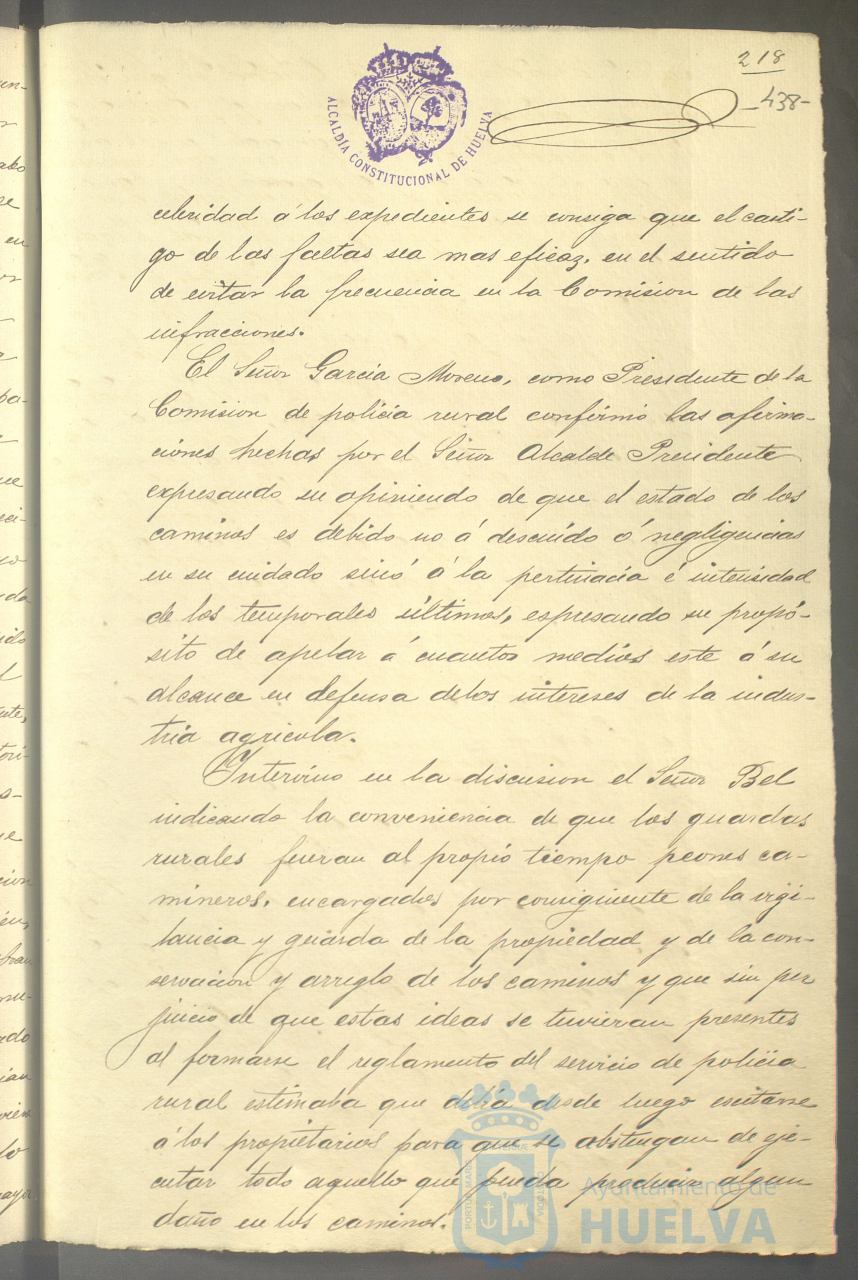 218
-438-
ALCALDÍA CONSTITUCIONAL DE HUELVA
celeridad á los expedientes se consiga que el casti-
go de las faltas sea mas eficaz, en el sentido
de evitar la frecuencia en la Comision de las
infracciones.
El Señor Garcia Moreno, como Presidente de la
Comision de policia rural confirmó las afirma-
ciones hechas por el Señor Alcalde Presidente
expresando su opiniendo de que el estado de los
caminos es debido no á descuido ó negligencias
en su cuidado sinó á la pertinacia é intensidad
de los temporales últimos, espresando su propó-
sito de apelar á cuantos medios este á su
alcance en defensa de los intereses de la indus-
tria agricola.
Intervino en la discusion el Señor Bel
indicando la conveniencia de que los guardas
rurales fueran al propio tiempo peones ca-
mineros, encargados por consiguiente de la vigi-
lancia y guarda de la propiedad y de la con-
servacion y arreglo de los caminos y que sin per
juicio de que estas ideas se tuvieran presentes
al formarse el reglamento del servicio de policia
rural estimaba que debia desde luego escitarse
á los propietarios para que se abstengan de eje-
cutar todo aquello que pueda producir algun
daño en los caminos.
Ayuntamiento de
HUELVA